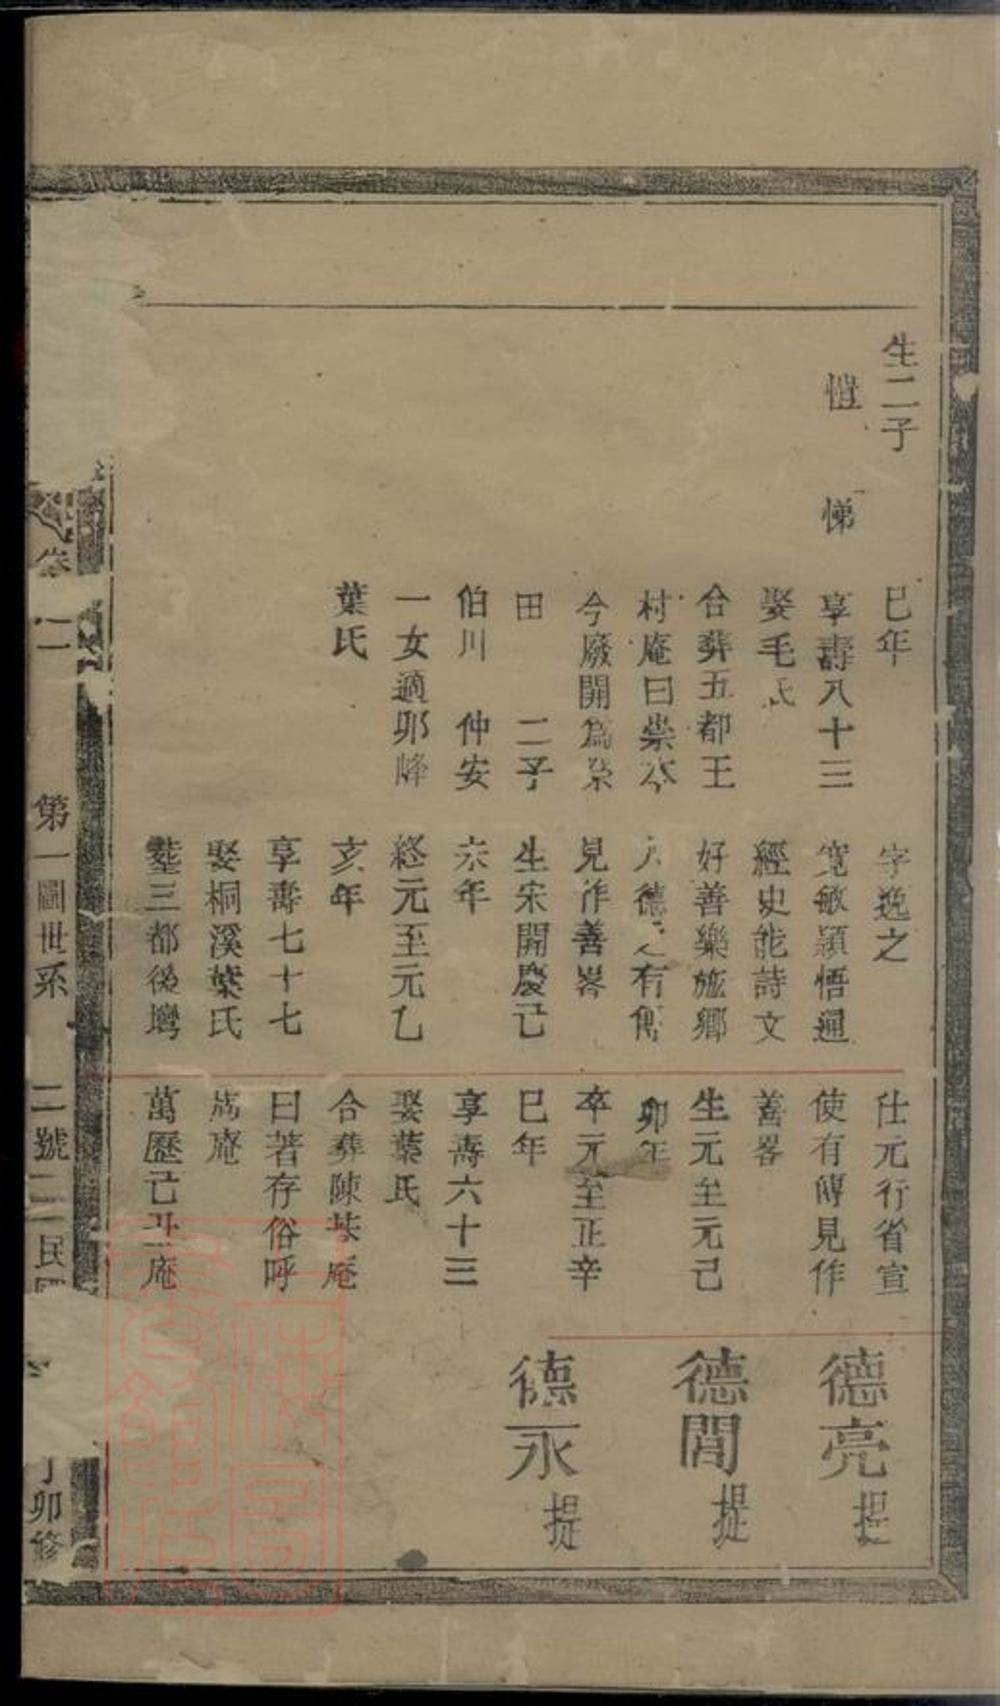 生二子
愷　悌
巳年
享壽八十三
娶毛氏
合葬五都王
村庵曰崇本
今廢開為桑
田　二子
伯川　仲安
一女適邜峰
葉氏
字逸之
寬敏穎悟通
經史能詩文
好善樂施鄉
人德之有傳
見作善畧
生宋開慶己
未年
終元至元乙
亥年
享壽七十七
娶桐溪葉氏
塟三都後塆
仕元行省宣
使有傳見作
善畧
生元至元己
卯年
卒元至正辛
巳年
享壽六十三
娶葉氏
合葬陳
庵
曰著存俗呼
庵
萬歷己丑庵
德亮 提
德閏 提
德永 提
卷二
第一圖世系
二號二
民國
丁卯修
上海圖書館藏